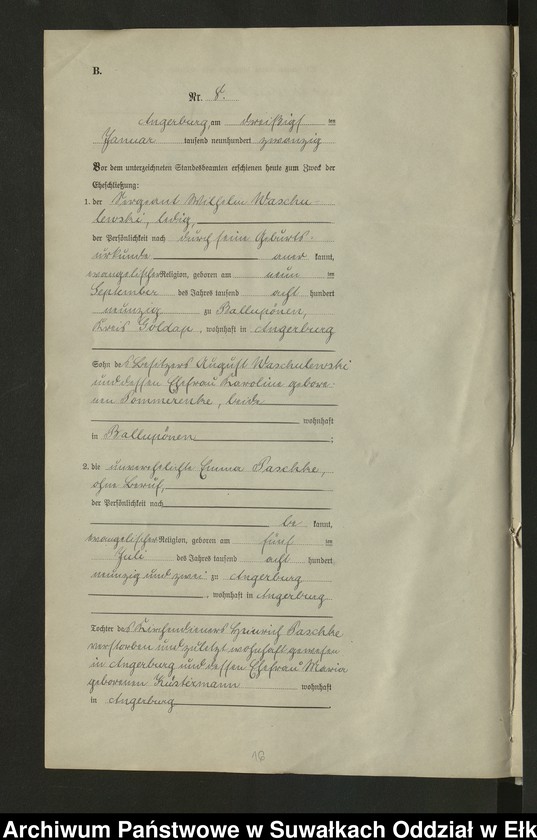 B.
Nr. 8.
Angerburg, am dreißigsten
Januar tausend neunhundert zwanzig
Vor dem unterzeichneten Standesbeamten erschienen heute zum Zweck der
Eheschließung:
1. der Sergeant Wilhelm Waschu-
lewski, ledig,
der Persönlichkeit nach durch seine Geburts-
urkunde aner kannt,
evangelischer Religion, geboren am neun ten
September des Jahres tausend acht hundert
neunzig zu Ballupönen,
Kreis Goldap, wohnhaft in Angerburg
Sohn des Besitzers August Waschulewski
und dessen Ehefrau Karoline gebore-
nen Pommerenke, beide
wohnhaft
in Ballupönen ;
2. die unverehelichte Emma Paschke,
ohne Beruf,
der Persönlichkeit nach
be kannt,
evangelischer Religion, geboren am fünf ten
Juli des Jahres tausend acht hundert
neunzig und zwei zu Angerburg
, wohnhaft in Angerburg
Tochter des Kirchendieners Heinrich Paschke
verstorben und zuletzt wohnhaft gewesen
in Angerburg und dessen Ehefrau Maria
geborenen Küstermann wohnhaft
in Angerburg .
16
Archiwum Państwowe w Suwałkach Oddział w Ełk